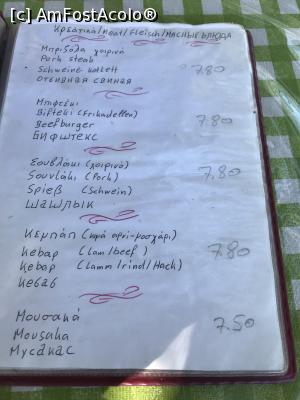 [c] AmFostAcolo®
Κρεατικά/Meat/Fleisch/МЯСНЫЕ БЛЮДА
Μπριζόλα χοιρινό
Pork steak 7,80
Schweine kotlett
ОТБИВНАЯ СВИНАЯ
Μπιφτέκι
Bifteki (Frikadellen) 7,80
Beefburger
БИФШТЕКС
Σουβλάκι (χοιρινό)
Souvláki (Pork) 7,80
Spieß (Schwein)
ШАШЛЫК
Κεμπάπ (κιμά αρνί-μοσχάρι)
Kebap (Lam/beef) 7.80
Kebap (Lamm/rind/Hack)
Кебаб
Μουσακά
Mousaka 7.50
Мусакас